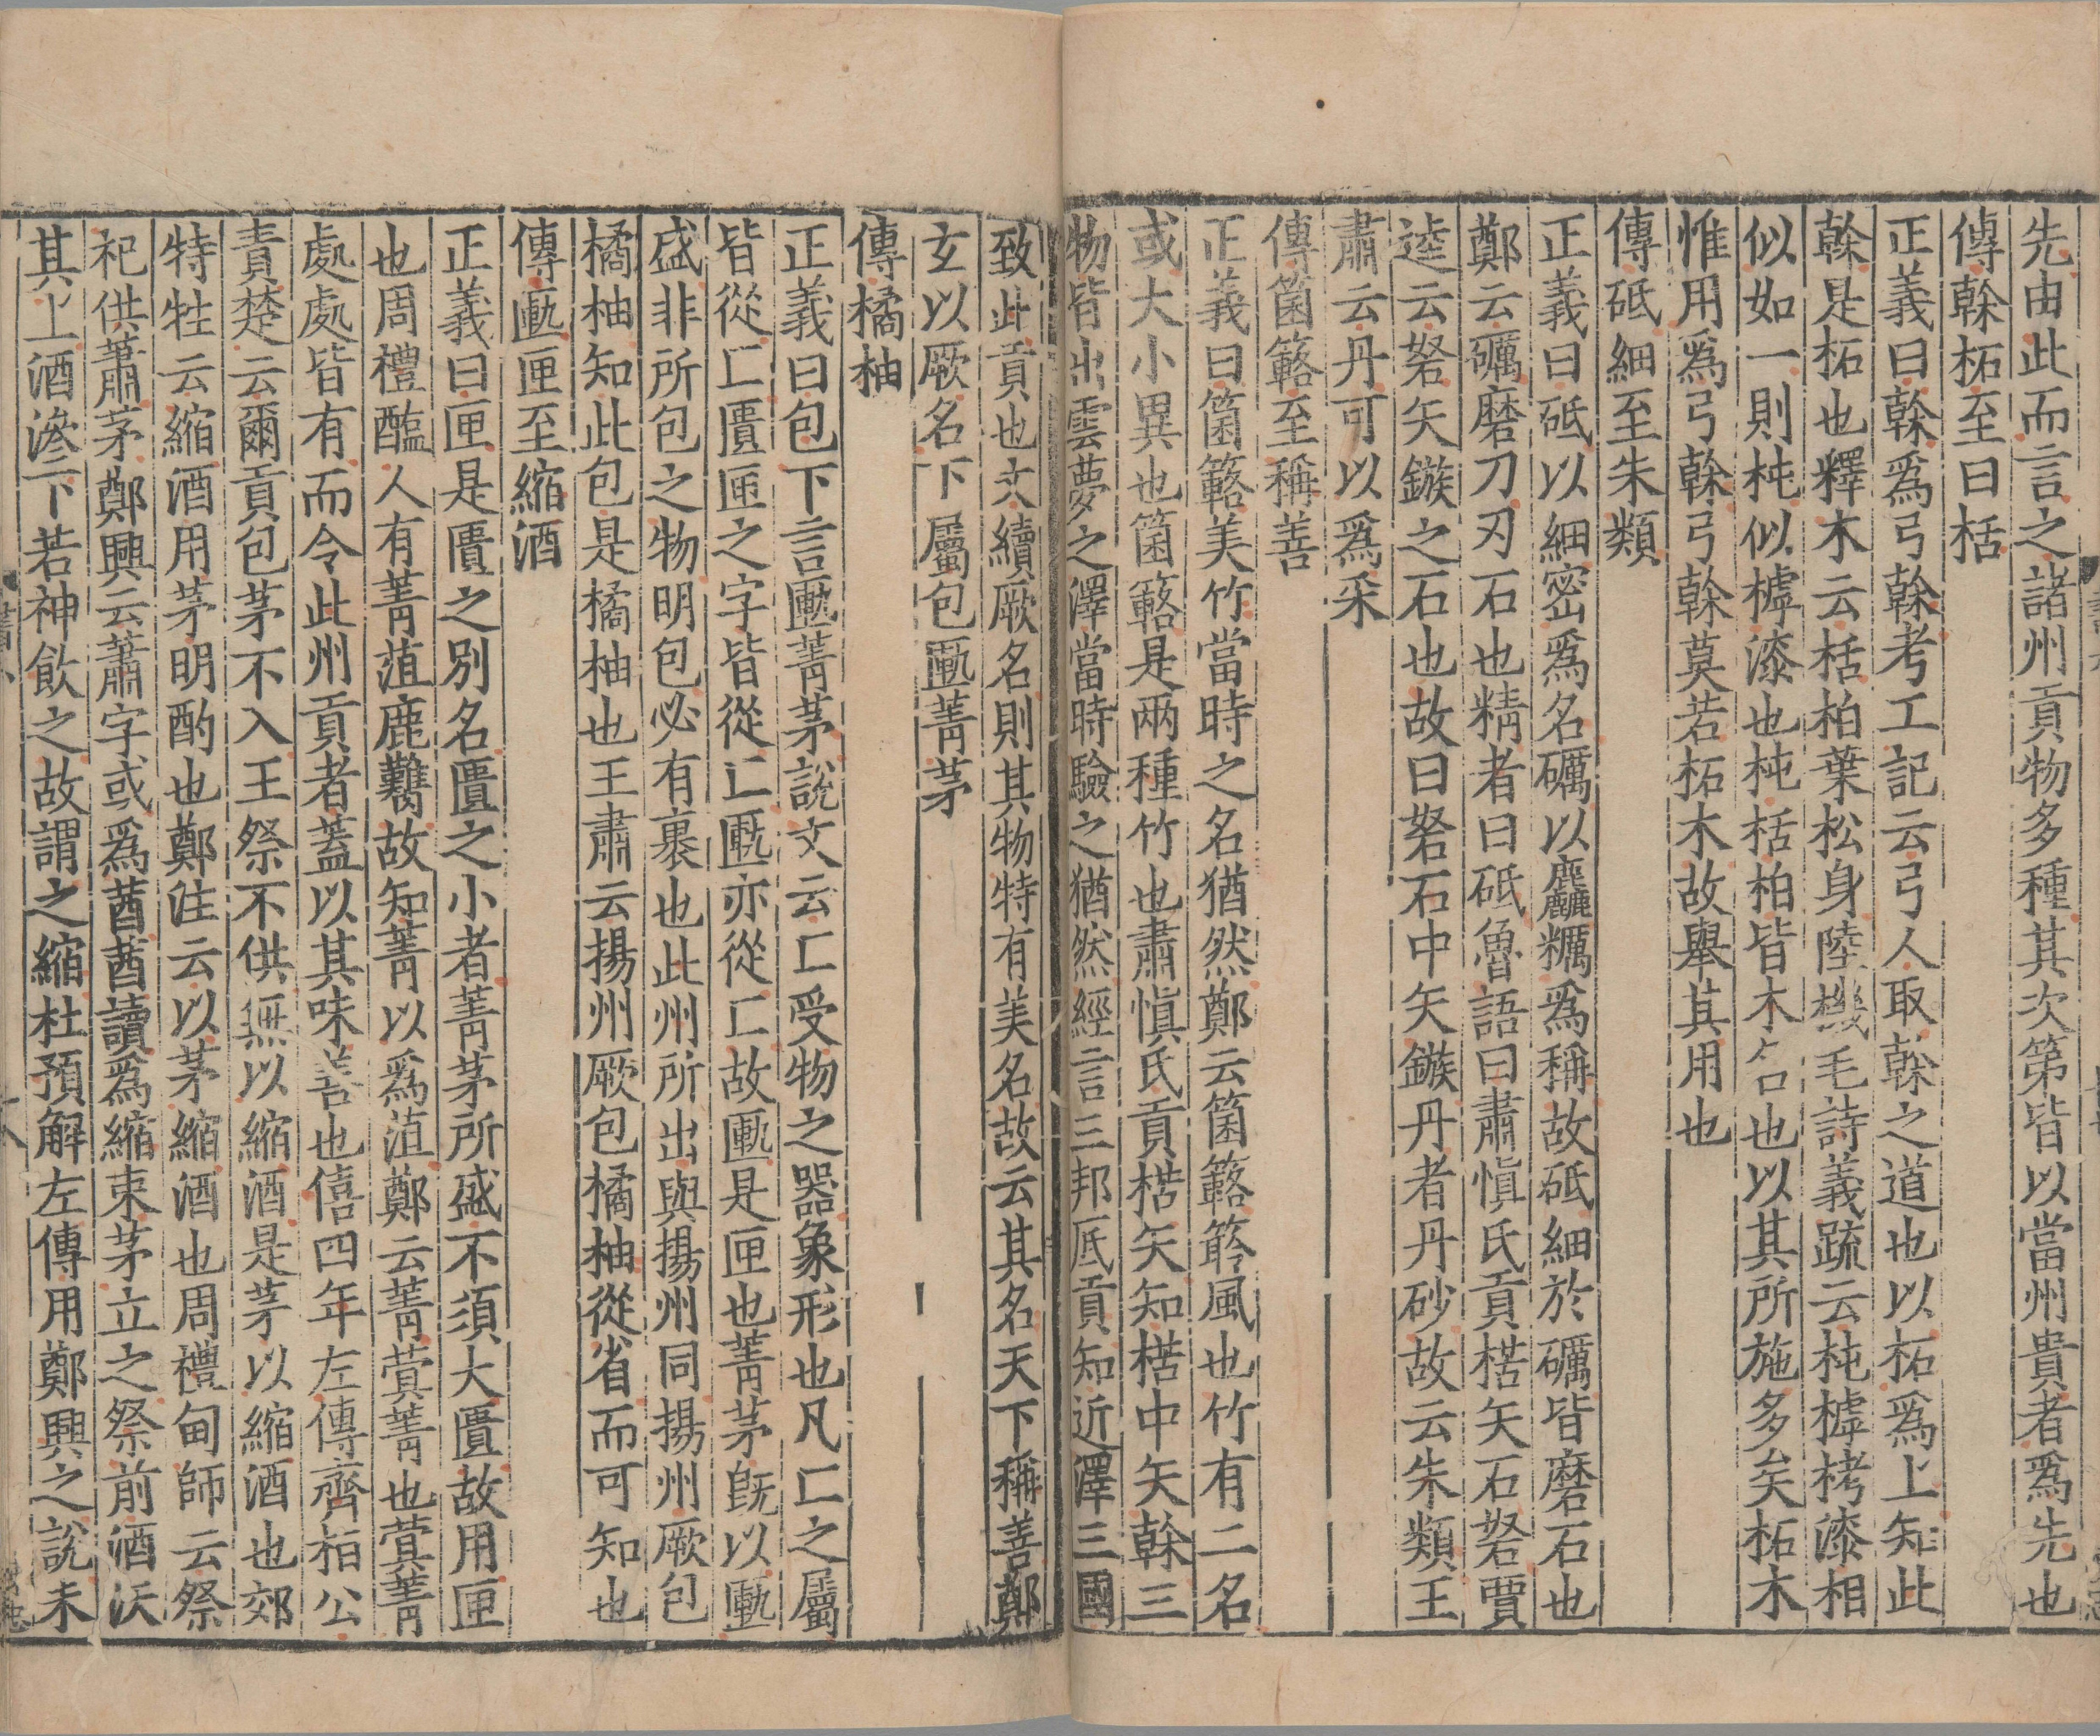 先由此而言之諸州貢物多種其次第皆以當州貴者爲先也
傳榦柘至曰栝
正義曰榦爲弓榦考工記云弓人取榦之道也以柘爲上知此
榦是柘也釋木云栝柏葉松身陸機毛詩義疏云杶樗栲漆相
似如一則杶似樗漆也杶栝柏皆木名也以其所施多矣柘木
惟用爲弓榦弓榦莫若柘木故舉其用也
傳砥細至朱類
正義曰砥以細密爲名礪以麤糲爲稱故砥細於礪皆磨石也
鄭云礪磨刀刃石也精者曰砥魯語曰肅愼氏貢楛矢石砮賈
逵云砮矢鏃之石也故曰砮石中矢鏃丹者丹砂故云朱類王
肅云丹可以爲采
傳箘簵至稱善
正義曰箘簵美竹當時之名猶然鄭云箘簵䈀風也竹有二名
或大小異也箘簵是兩種竹也肅愼氏貢楛矢知楛中矢榦三
物皆出雲夢之澤當時驗之猶然經言三邦厎貢知近澤三國
致此貢也文續厥名則其物特有美名故云其名天下稱善鄭
玄以厥名下屬包匭菁茅
傳橘柚
正義曰包下言匭菁茅說文云匚受物之器象形也凡匚之屬
皆從匚匱匣之字皆從匚匭亦從匚故匭是匣也菁茅旣以匭
盛非所包之物明包必有裹也此州所出與揚州同揚州厥包
橘柚知此包是橘柚也王肅云揚州厥包橘柚從省而可知也
傳匭匣至縮酒
正義曰匣是匱之別名匱之小者菁茅所盛不須大匱故用匣
也周禮醢人有菁菹鹿臡故知菁以爲菹鄭云菁蓂菁也蓂菁
處處皆有而令此州貢者蓋以其味善也僖四年左傳齊桓公
責楚云爾貢包茅不入王祭不供無以縮酒是茅以縮酒也郊
特牲云縮酒用茅明酌也鄭注云以茅縮酒也周禮甸師云祭
祀供蕭茅鄭興云蕭字或爲莤莤讀爲縮束茅立之祭前酒沃
其上酒滲下若神飮之故謂之縮杜預解左傳用鄭興之說未